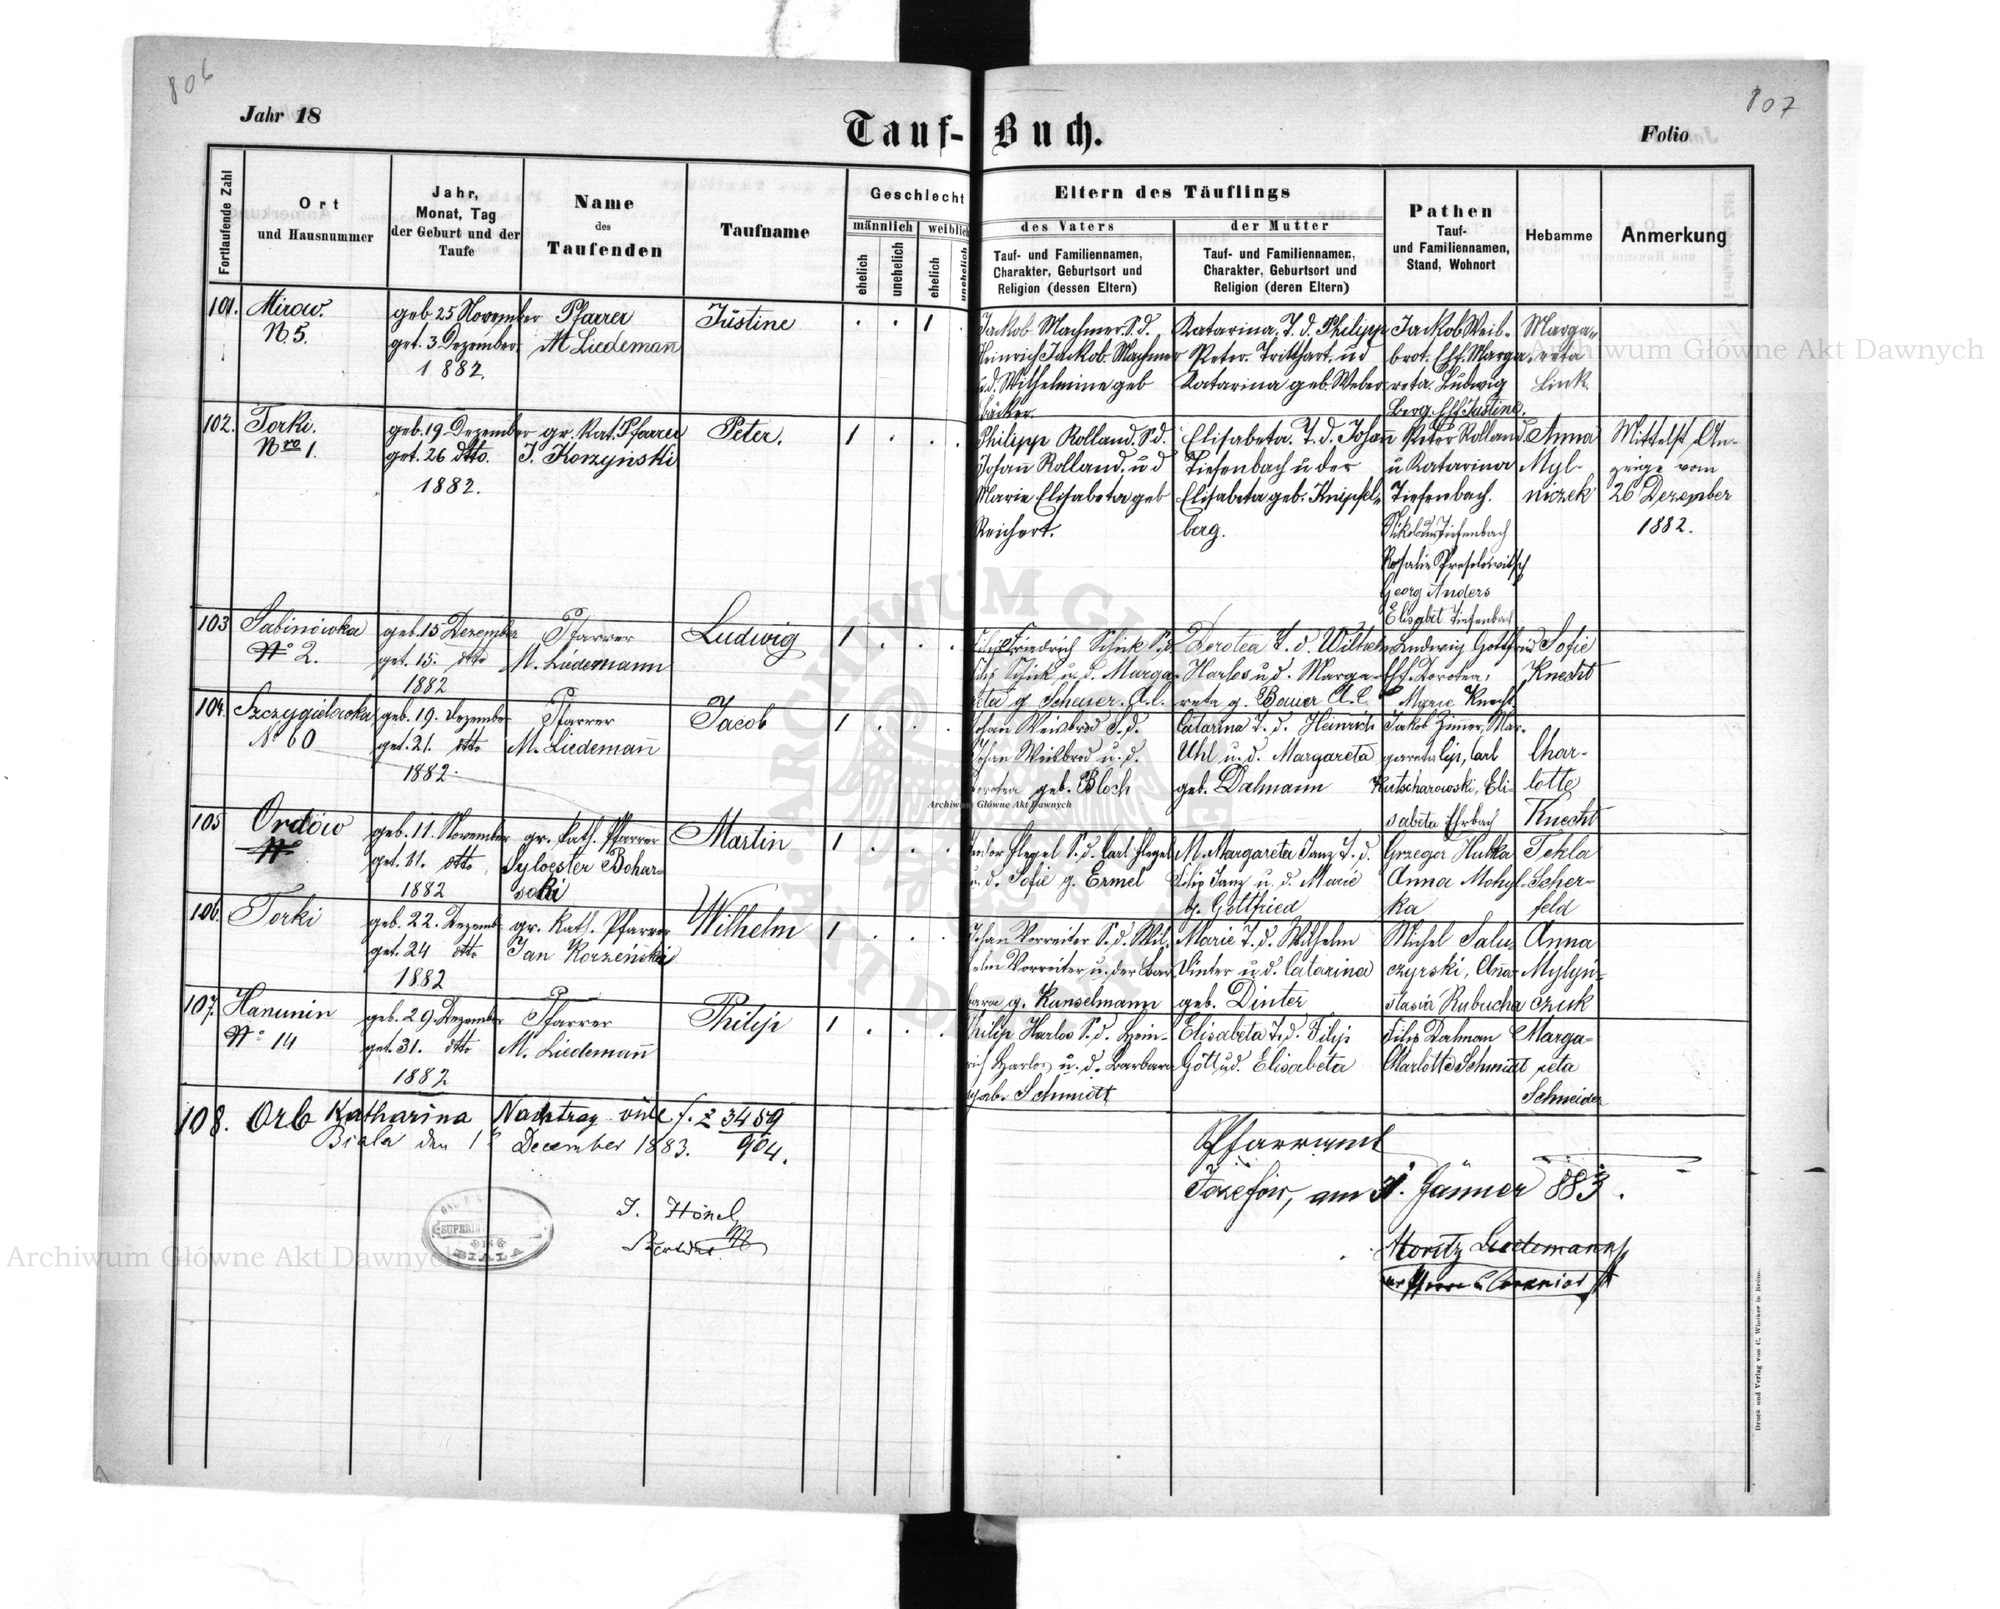 806
807
Jahr 18
Tauf-Buch.
Folio
Fortlaufende Zahl
Ort
und Hausnummer
Jahr,
Monat, Tag
der Geburt und der
Taufe
Name
des
Taufenden
Taufname
Geschlecht
männlich
weiblich
ehelich
unehelich
ehelich
unehelich
Eltern des Täuflings
des Vaters
Tauf- und Familiennamen,
Charakter, Geburtsort und
Religion (dessen Eltern)
der Mutter
Tauf- und Familiennamen,
Charakter, Geburtsort und
Religion (deren Eltern)
Pathen
Tauf-
und Familiennamen,
Stand, Wohnort
Hebamme
Anmerkung
101.
Mirow.
N. 5.
geb 25 November
get. 3. Dezember.
1882.
Pfarrer
M Liedemañ
Justine
1
Jackob Machmer. S. d.
Heinrich Jackob Machmer
u.d. Wilhelmine geb
Bäcker.
Katarina. T. d. Philipp
Peter. Tritthart. ud
Katarina geb. Weber
Jackob Weis-
brot. Marga-
reta. Ludwig
Berg. Justine.
Marga-
reta
Link.
102.
Torki.
Nro 1.
geb. 19 Dezember
get. 26 dtto.
1882.
gr. Kat. Pfarrer
J. Korzyński
Peter.
1
Philipp Rolland. S. d.
Johañ Rolland. u d
Marie Elisabeta geb
Reichert.
Elisabeta. T. d. Johañ
Tiefenbach u der
Elisabeta geb. Knipfel-
berg.
Peter Rolland
u Katarina
Tiefenbach.
Tiefenbach
Rosalie
Georg Anders
Elisabet Tiefenbach
Anna
Myl-
niczek
Mittelst An-
zeige vom
26 Dezember
1882.
103
Sabinówka
No 2.
geb. 15 Dezember
get. 15. dtto
1882
Pfarrer
M. Liedemann
Ludwig
1
Friedrich Schick S.d.
Filip Schick u. d. Marga-
reta g. Scheuer. A. C.
Dorotea T. d. Wilhelm
Harlos u d. Marga-
reta g. Bauer A. C.
Ludwig Gottfried
Dorotea,
Marie Knecht
Sofie
Knecht
104.
Szczygielowka
No 60
geb. 19. Dezember
get. 21. dtto
1882.
Pfarrer
M. Liedemañ
Jacob
1
Johan Weisbrod S. d.
Johan Weisbrod u. d.
Dorotea geb. Bloch
Catarina T. d. Heinrich
Uhl u. d. Margareta
geb. Dalmann
Jakob Zimer, Mar-
gareta Lip, Carl
Kutscharowski, Eli-
sabeta Ehrbach
Char-
lotte
Knecht
105
Ordów
geb. 11. November
get. 11. dtto
1882
gr. kath. Pfarrer
Sylvester Bohar-
ski
Martin
1
Flegel S. d. Carl Flegel
u. d. Sofie g. Ermel
M. Margareta Janz T. d.
Filip Janz u. d. Marie
g. Gottfried
Grzegor Hutka
Anna Mohyl-
ka
Tekla
Scher-
feld
106.
Torki
geb. 22. Dezemb.
get. 24 dtto
1882
gr. kath. Pfarrer
Jan Korzeński
Wilhelm
1
Johan Vorreiter S. d. Wil-
helm Vorreiter u. der Bar-
bara g. Kunselmann
Marie T. d. Wilhelm
Dinter u d. Catarina
geb. Dinter
Michel Salu-
czyrski, Ana-
stasia Rubucha
Anna
Mylyn-
czuk
107.
Hanunin
No 14
geb. 29. Dezember
get. 31. dtto
1882
Pfarrer
M. Liedemañ
Philip
1
Philip Harlos S. d. Hein-
rich Harlos u. d. Barbara
geb. Schmidt
Elisabeta T. d. Filip
Gött u d. Elisabeta
Filip Dalman
Charlotte Schmidt
Marga-
reta
Schneider
108.
Orb Katharina Nachtrag vide f. Z 3459
904.
Biala den December 1883.
J. Hönel
SUPERIN
BIALA
Pfarramt
Józefów, am 31. Jänner 883.
Moritz Liedemann
Druck und Verlag von C. Winiker in Brünn.
Archiwum Główne Akt Dawnych
Archiwum Główne Akt Dawnych
Archiwum Główne Akt Dawnych
ARCHIWUM GŁÓWNE AKT DAWNYCH